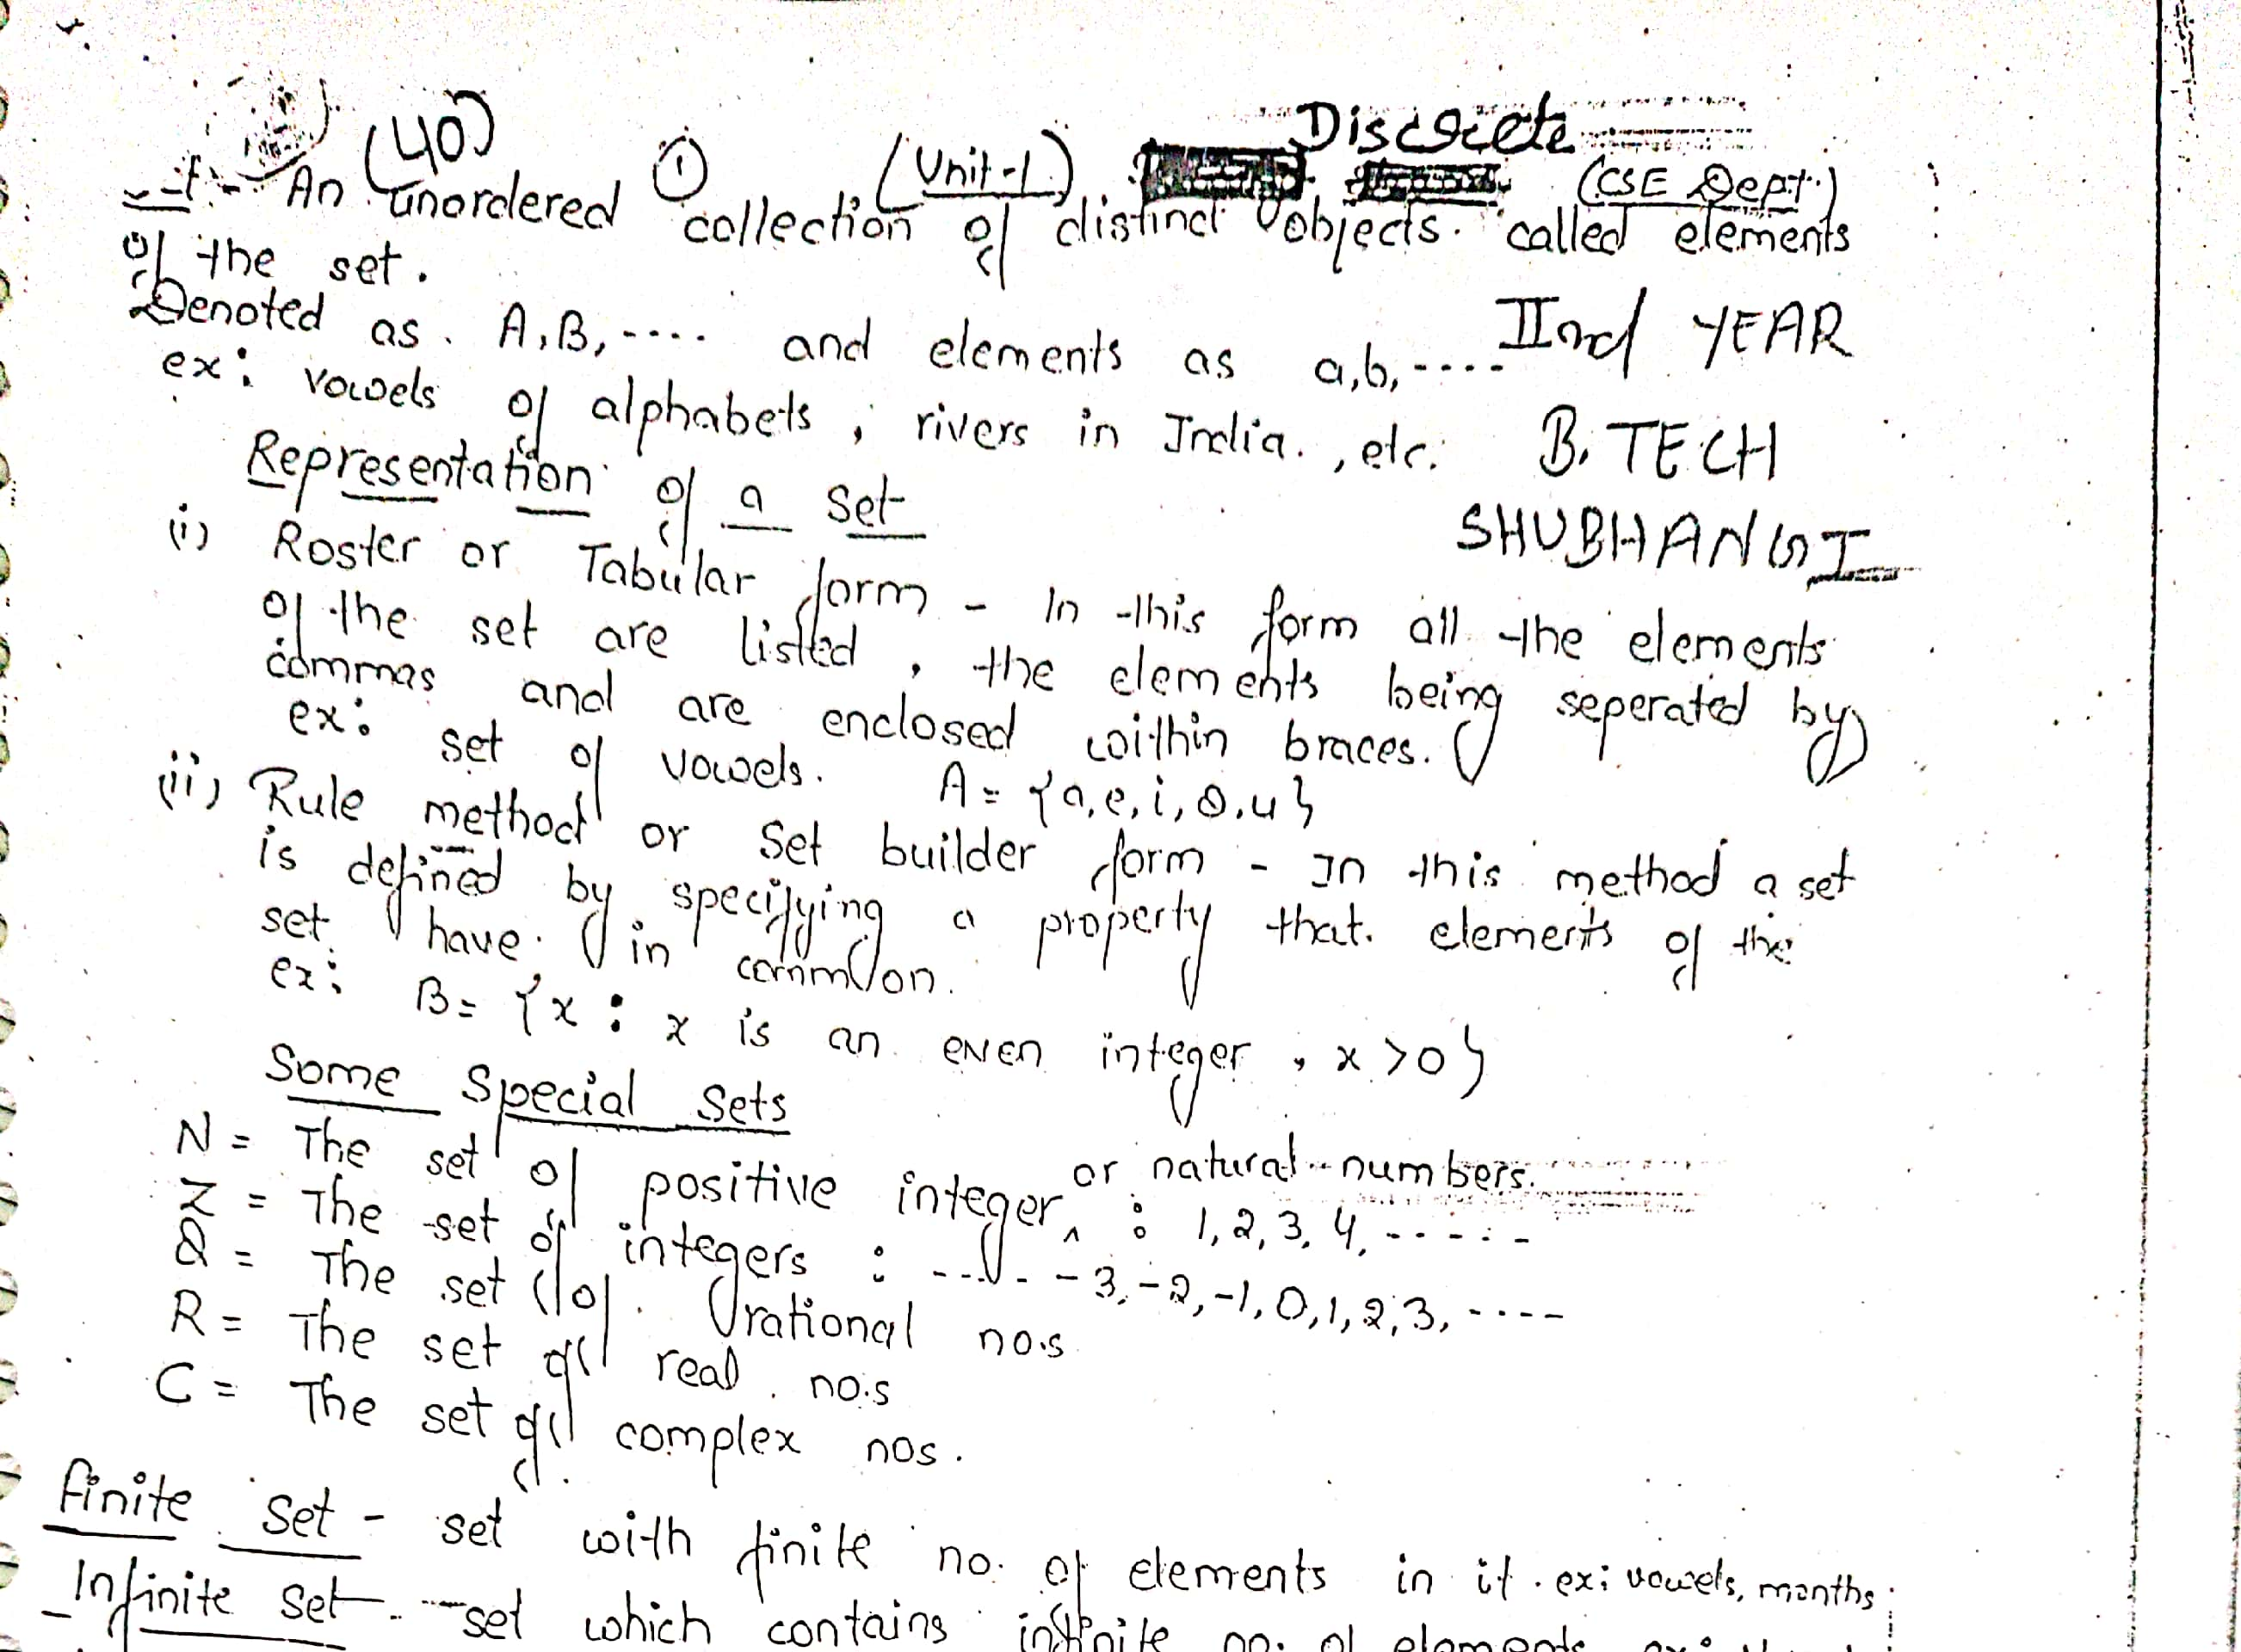 (40) ① (Unit-1) Discrete
(CSE Dept.)
An unordered collection of distinct objects. called elements
of the set.
Denoted as. A, B, ---- and elements as a, b, ----
IInd YEAR
ex: vowels of alphabets, rivers in India., etc.
B. TECH
Representation of a set
SHUBHANGI
(i) Roster or Tabular form - In this form all the elements
of the set are listed, the elements being seperated by
commas and are enclosed within braces.
ex: set of vowels. A = {a, e, i, o, u}
(ii) Rule method or Set builder form - In this method a set
is defined by specifying a property that elements of the
set have in common.
ex: B = {x : x is an even integer, x > 0}
Some Special Sets
N = The set of positive integer ^ or natural numbers. : 1, 2, 3, 4, -----
Z = The set of integers : ----- -3, -2, -1, 0, 1, 2, 3, ----
Q = The set of rational no.s
R = The set of real no.s
C = The set of complex nos.
Finite Set - set with finite no. of elements in it. ex: vowels, months
Infinite Set - set which contains infinite no. of elements